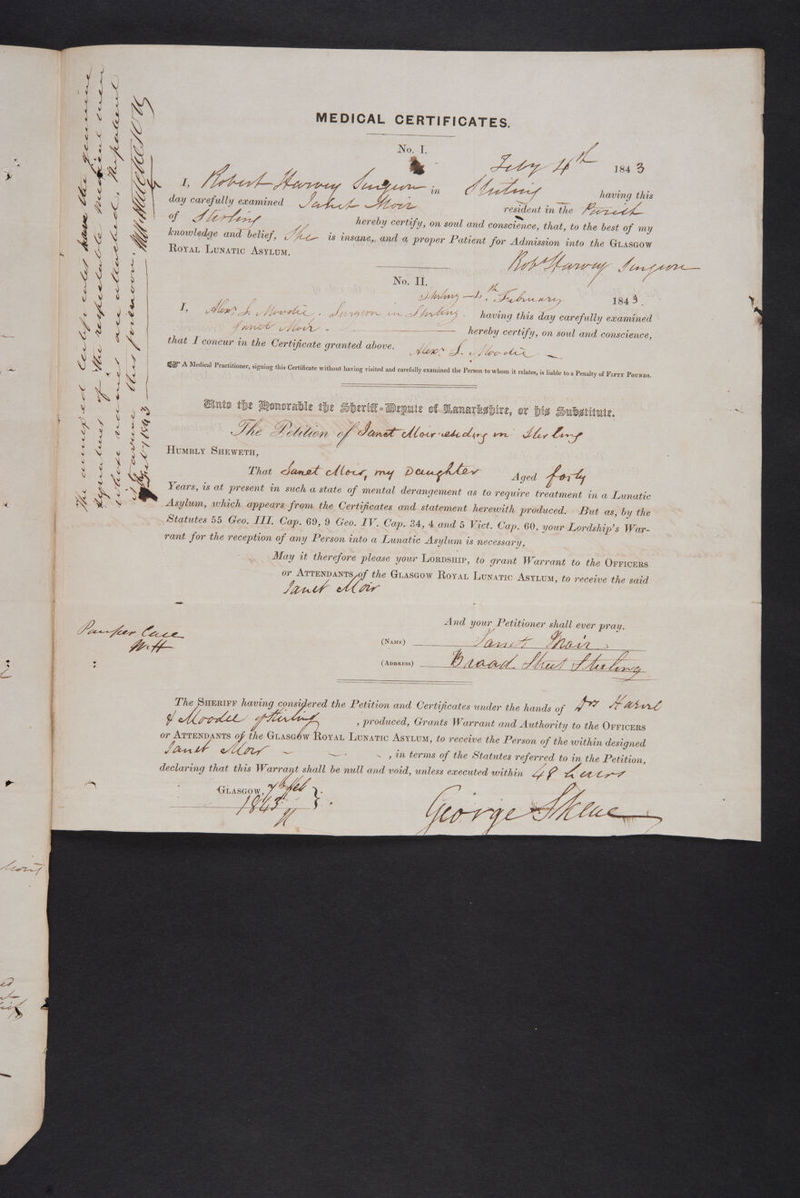 MEDICAL CERTIFICATES.
No. I.
Feby 4th 1843
I, Robert Harvey Surgeon in Stirling having this
day carefully examined Janet Moir resident in the Parish
of Stirling hereby certify, on soul and conscience, that, to the best of my
knowledge and belief, She is insane, and a proper Patient for Admission into the GLASGOW
ROYAL LUNATIC ASYLUM.
Robt Harvey Surgeon
No. II.
Stirling 4th February 1843.
I, Alexr S. Moodie. Surgeon in Stirling. having this day carefully examined
Janet Moir - hereby certify, on soul and conscience,
that I concur in the Certificate granted above.
Alexr S. Moodie
☞ A Medical Practitioner, signing this Certificate without having visited and carefully examined the Person to whom it relates, is liable to a Penalty of FIFTY POUNDS.
Unto the Honorable the Sheriff-Depute of Lanarkshire, or his Substitute.
The Petition of Janet Moir residing in Stirling
HUMBLY SHEWETH,
That Janet Moir, my Daughter Aged forty
Years, is at present in such a state of mental derangement as to require treatment in a Lunatic
Asylum, which appears from the Certificates and statement herewith produced. But as, by the
Statutes 55 Geo. III. Cap. 69, 9 Geo. IV. Cap. 34, 4 and 5 Vict. Cap. 60, your Lordship's War-
rant for the reception of any Person into a Lunatic Asylum is necessary,
May it therefore please your LORDSHIP, to grant Warrant to the OFFICERS
or ATTENDANTS of the GLASGOW ROYAL LUNATIC ASYLUM, to receive the said
Janet Moir
And your Petitioner shall ever pray.
(NAME) Janet Moir
(ADDRESS) Broad Street Stirling
Pauper Case
The SHERIFF having considered the Petition and Certificates under the hands of Drs Harvey
& Moodie of Stirling, produced, Grants Warrant and Authority to the OFFICERS
or ATTENDANTS of the GLASGOW ROYAL LUNATIC ASYLUM, to receive the Person of the within designed
Janet Moir, in terms of the Statutes referred to in the Petition,
declaring that this Warrant shall be null and void, unless executed within 48 hours
GLASGOW, 7th Feb
1843
George Skene
The annexed Certificates have the genuine
signatures of the respectable medical men
whose names are attached. The patient